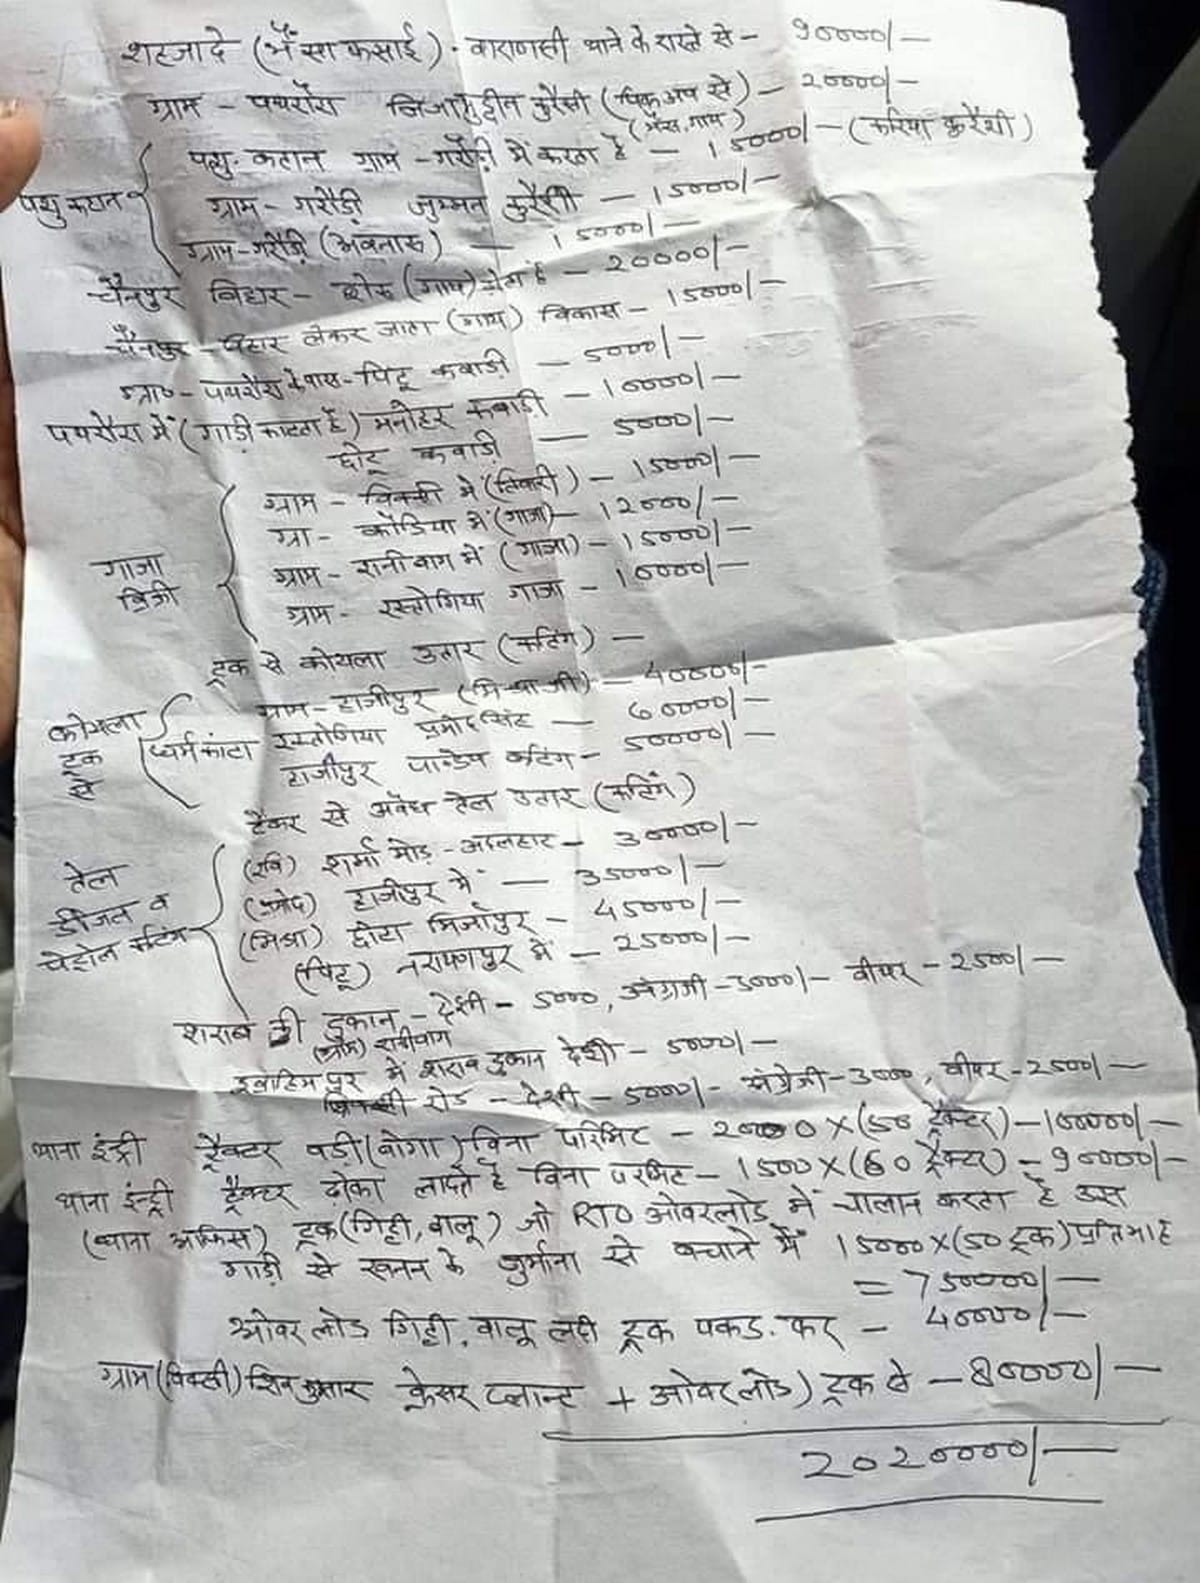 शहजादे (भैंसा कसाई). वाराणसी थाने के रास्ते से - 90000/-
ग्राम - पथरौरा निजामुद्दीन कुरैसी (पिकअप से) - 20000/-
(भैंस, गाय)
पशु कटान
पशु-कटान ग्राम - गरौड़ी में करता है - 15000/- (करिया कुरैशी)
ग्राम - गरौड़ी जुम्मन कुरैसी - 15000/-
ग्राम-गरौड़ी - 15000/-
चैनपुर बिहार - (गाय) - 20000/-
चैनपुर - बिहार लेकर जाता (गाय) विकास - 15000/-
ग्रा० - पथरौरा के पास - पिंटू कबाड़ी - 5000/-
पथरौरा में (गाड़ी काटता है) मनोहर कबाड़ी - 10000/-
छोटू कबाड़ी - 5000/-
गाजा बिक्री
ग्राम - बिक्सी में (तिवारी) - 15000/-
ग्रा - कोडिया में (गाजा) - 12000/-
ग्राम - रानीबाग में (गाजा) - 15000/-
ग्राम - रस्तोगिया गाजा - 10000/-
ट्रक से कोयला उतार (कटिंग) -
कोयला ट्रक से
ग्राम - हाजीपुर - 40000/-
धर्मकांटा रस्तोगिया प्रमोद सिंह - 60000/-
हाजीपुर पान्डेय कटिंग - 50000/-
टैंकर से अवैध तेल उतार (कटिंग)
तेल डीजल व पेट्रोल कटिंग
(रवि) शर्मा मोड़ - - 30000/-
(प्रमोद) हाजीपुर में - 35000/-
(मिश्रा) छोटा मिर्जापुर - 45000/-
(पिंटू) नरायणपुर में - 25000/-
शराब की दुकान - देशी - 5000, अंग्रेजी - 3000/- बीयर - 2500/-
(ग्राम) रानीबाग
इब्राहिमपुर में शराब दुकान देशी - 5000/-
बिक्सी रोड - देशी - 5000/- अंग्रेजी - 3000, बीयर - 2500/-
थाना इंट्री ट्रैक्टर बड़ी (बोगा) बिना परिमिट - 2000 X (50 ट्रैक्टर) - 100000/-
थाना इंट्री ट्रैक्टर ढोका लादते है बिना परमिट - 1500 X (60 ट्रैक्टर) - 90000/-
(थाना आफिस) ट्रक (गिट्टी, बालू) जो RTO ओवरलोड में चालान करता है उस
गाड़ी से खनन के जुर्माना से बचाने में 15000 X (50 ट्रक) प्रतिमाह
= 750000/-
ओवर लोड गिट्टी, बालू लदी ट्रक पकड़. कर - 40000/-
ग्राम (बिक्सी) शिव कुमार क्रेसर प्लान्ट + ओवर (लोड) ट्रक से - 80000/-
2020000/-